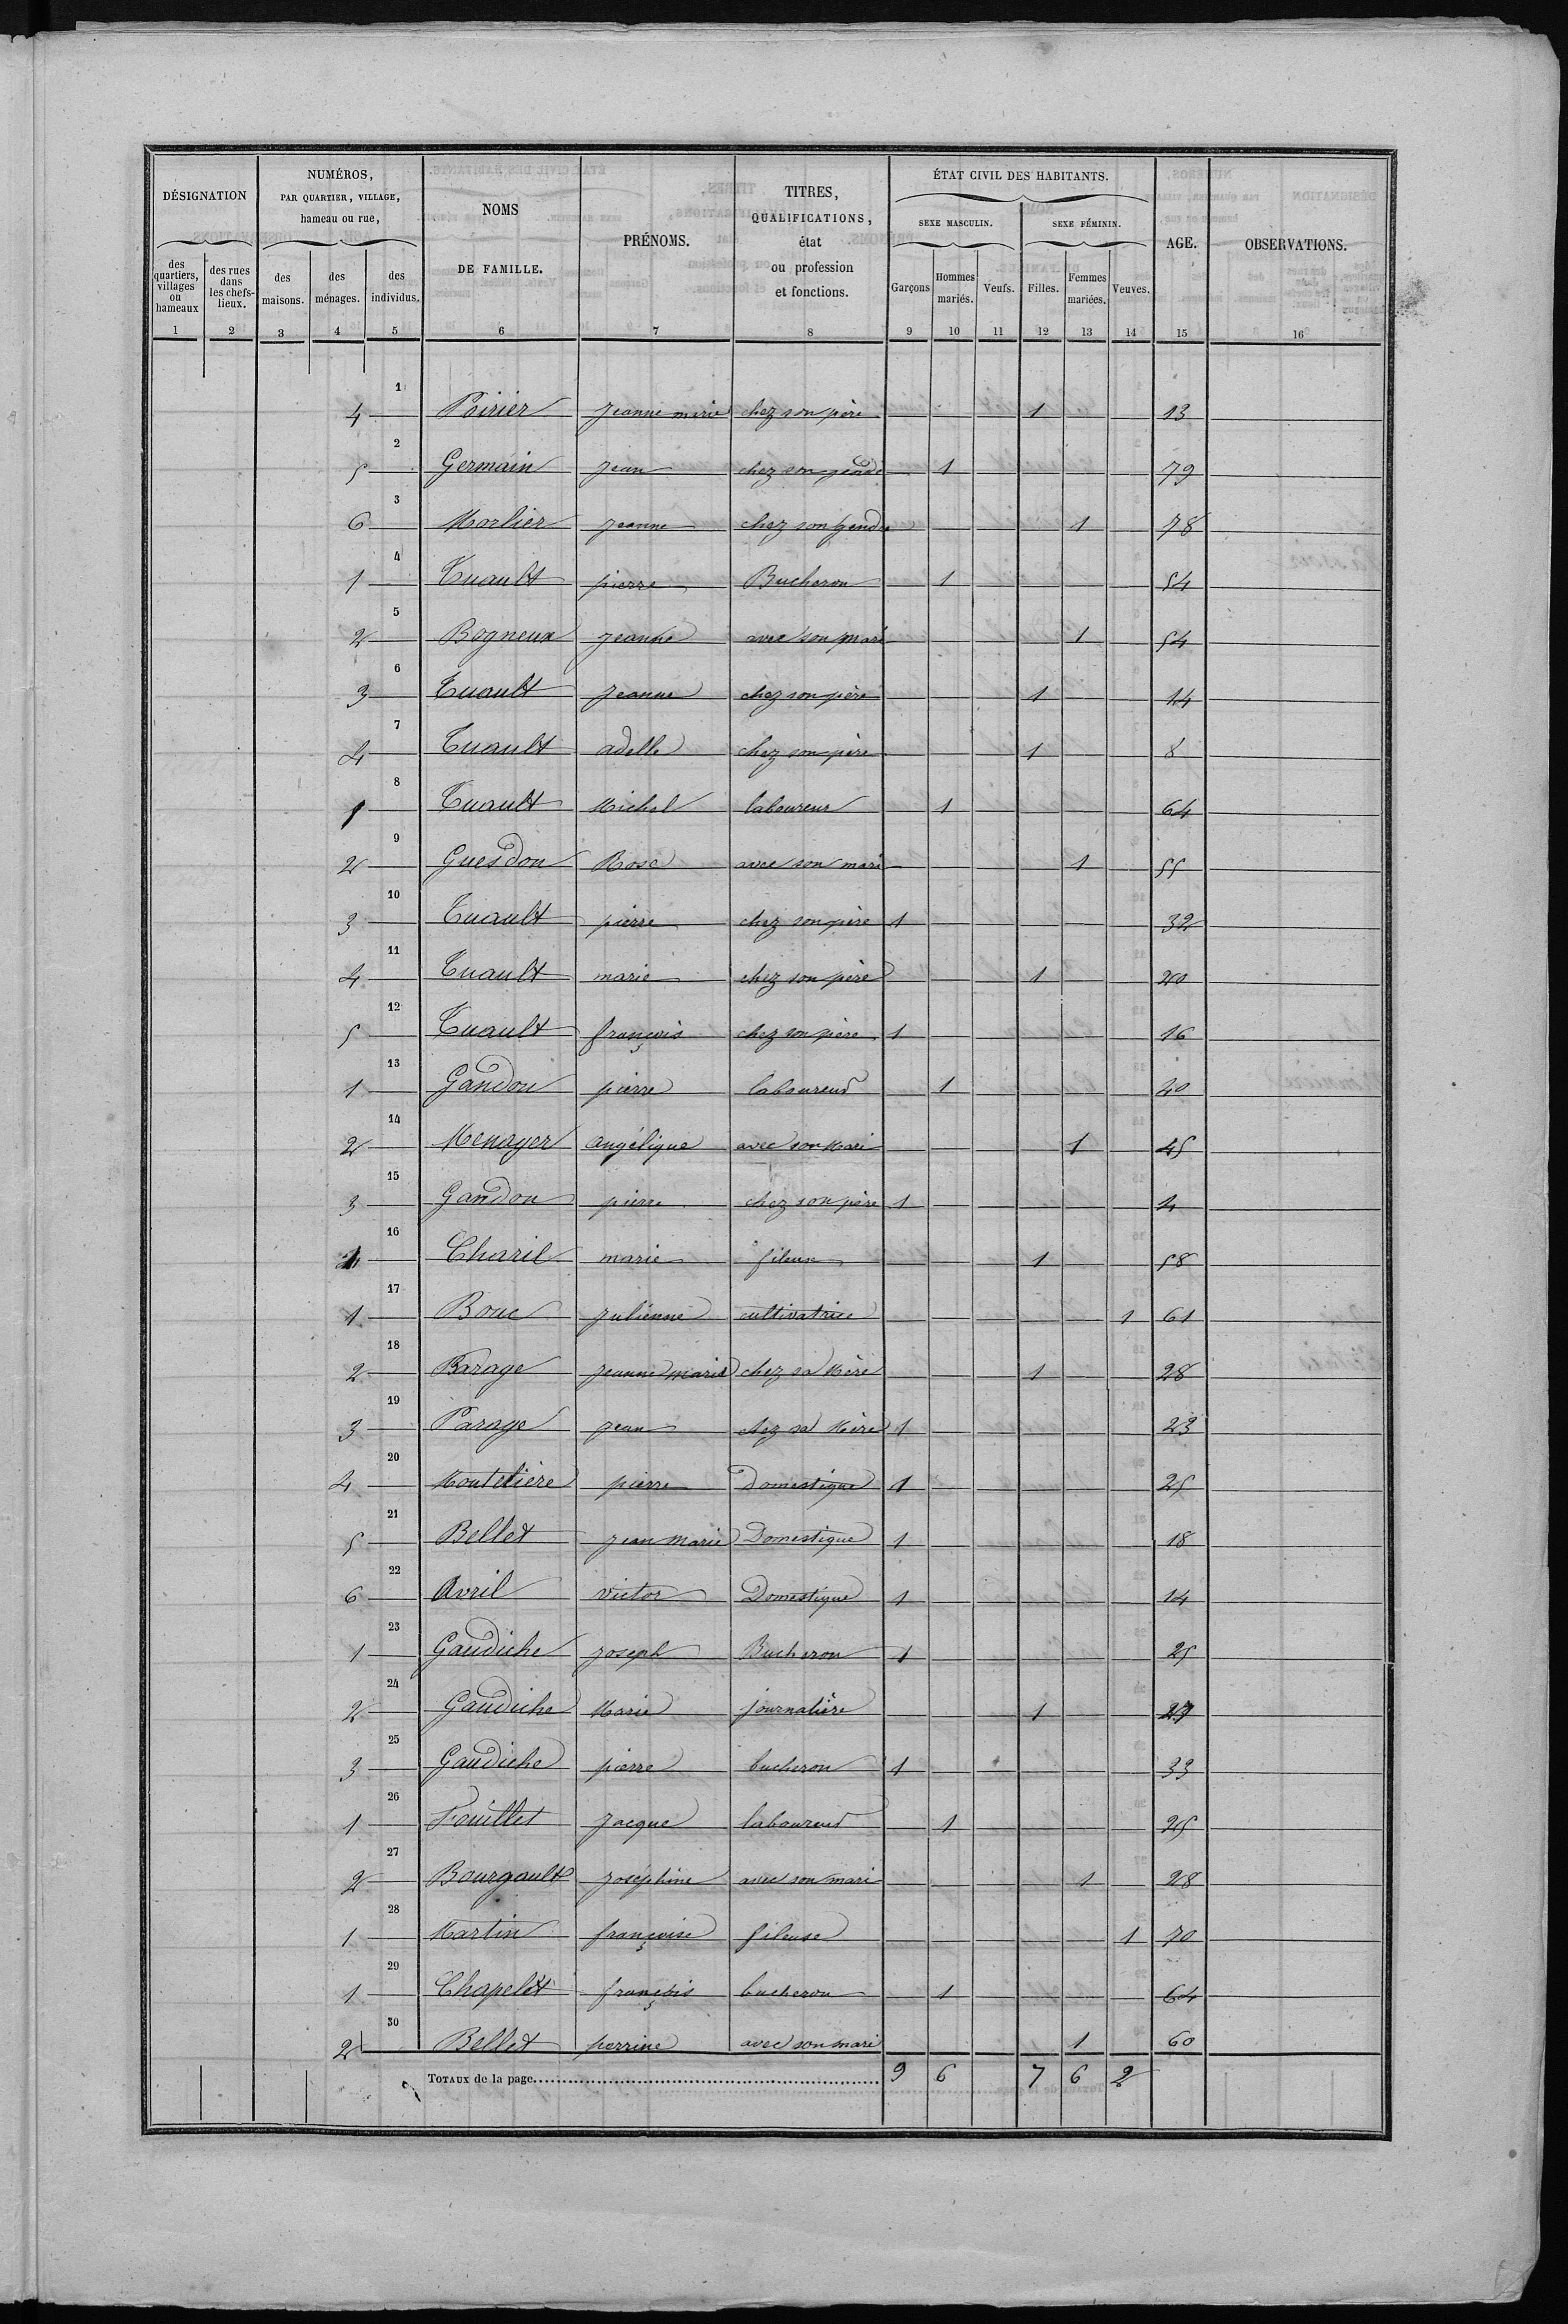 DÉSIGNATION
NUMÉROS,
PAR QUARTIER, VILLAGE,
hameau ou rue,
NOMS
DE FAMILLE.
PRÉNOMS.
TITRES,
QUALIFICATIONS,
état
ou profession
et fonctions.
ÉTAT CIVIL DES HABITANTS.
SEXE MASCULIN.
SEXE FÉMININ.
AGE.
OBSERVATIONS.
des quartiers, villages ou hameaux
des rues dans les chefs-lieux.
des maisons.
des ménages.
des individus.
Garçons
Hommes mariés.
Veufs.
Filles.
Femmes mariées.
Veuves.
1 2 3 4 5 6 7 8 9 10 11 12 13 14 15 16
4 1 Poirier jeanne marie chez son père 1 13
5 2 Germain jean chez son gendre 1 79
6 3 Morlier jeanne chez son gendre 1 78
1 4 Tuault pierre Bucheron 1 54
2 5 Bogneux jeanne avec son mari 1 54
3 6 Tuault jeanne chez son père 1 14
4 7 Tuault adelle chez son père 1 8
1 8 Tuault Michel laboureur 1 64
2 9 Guesdon Rose avec son mari 1 55
3 10 Tuault pierre chez son père 1 32
4 11 Tuault marie chez son père 1 20
5 12 Tuault françois chez son père 1 16
1 13 Gandon pierre laboureur 1 40
2 14 Menager angélique avec son Mari 1 45
3 15 Gandon pierre chez son père 1 4
16 Charil marie fileuse 1 58
1 17 Bouc julienne cultivatrice 1 61
2 18 Parage jeanne marie chez sa Mère 1 28
3 19 Parage jean chez sa Mère 1 23
4 20 Moutelière pierre Domestique 1 25
5 21 Bellet jean marie Domestique 1 18
6 22 Avril victor Domestique 1 14
1 23 Gaudiche joseph Bucheron 1 25
2 24 Gaudiche Marie journalière 1 27
3 25 Gaudiche pierre bucheron 1 33
1 26 Fouillet jacque laboureur 1 25
2 27 Bourgault joséphine avec son mari 1 28
1 28 Martin françoise fileuse 1 70
1 29 Chapelet françois bucheron 1 64
2 30 Bellet perrine avec son mari 1 60
TOTAUX de la page 9 6 7 6 2